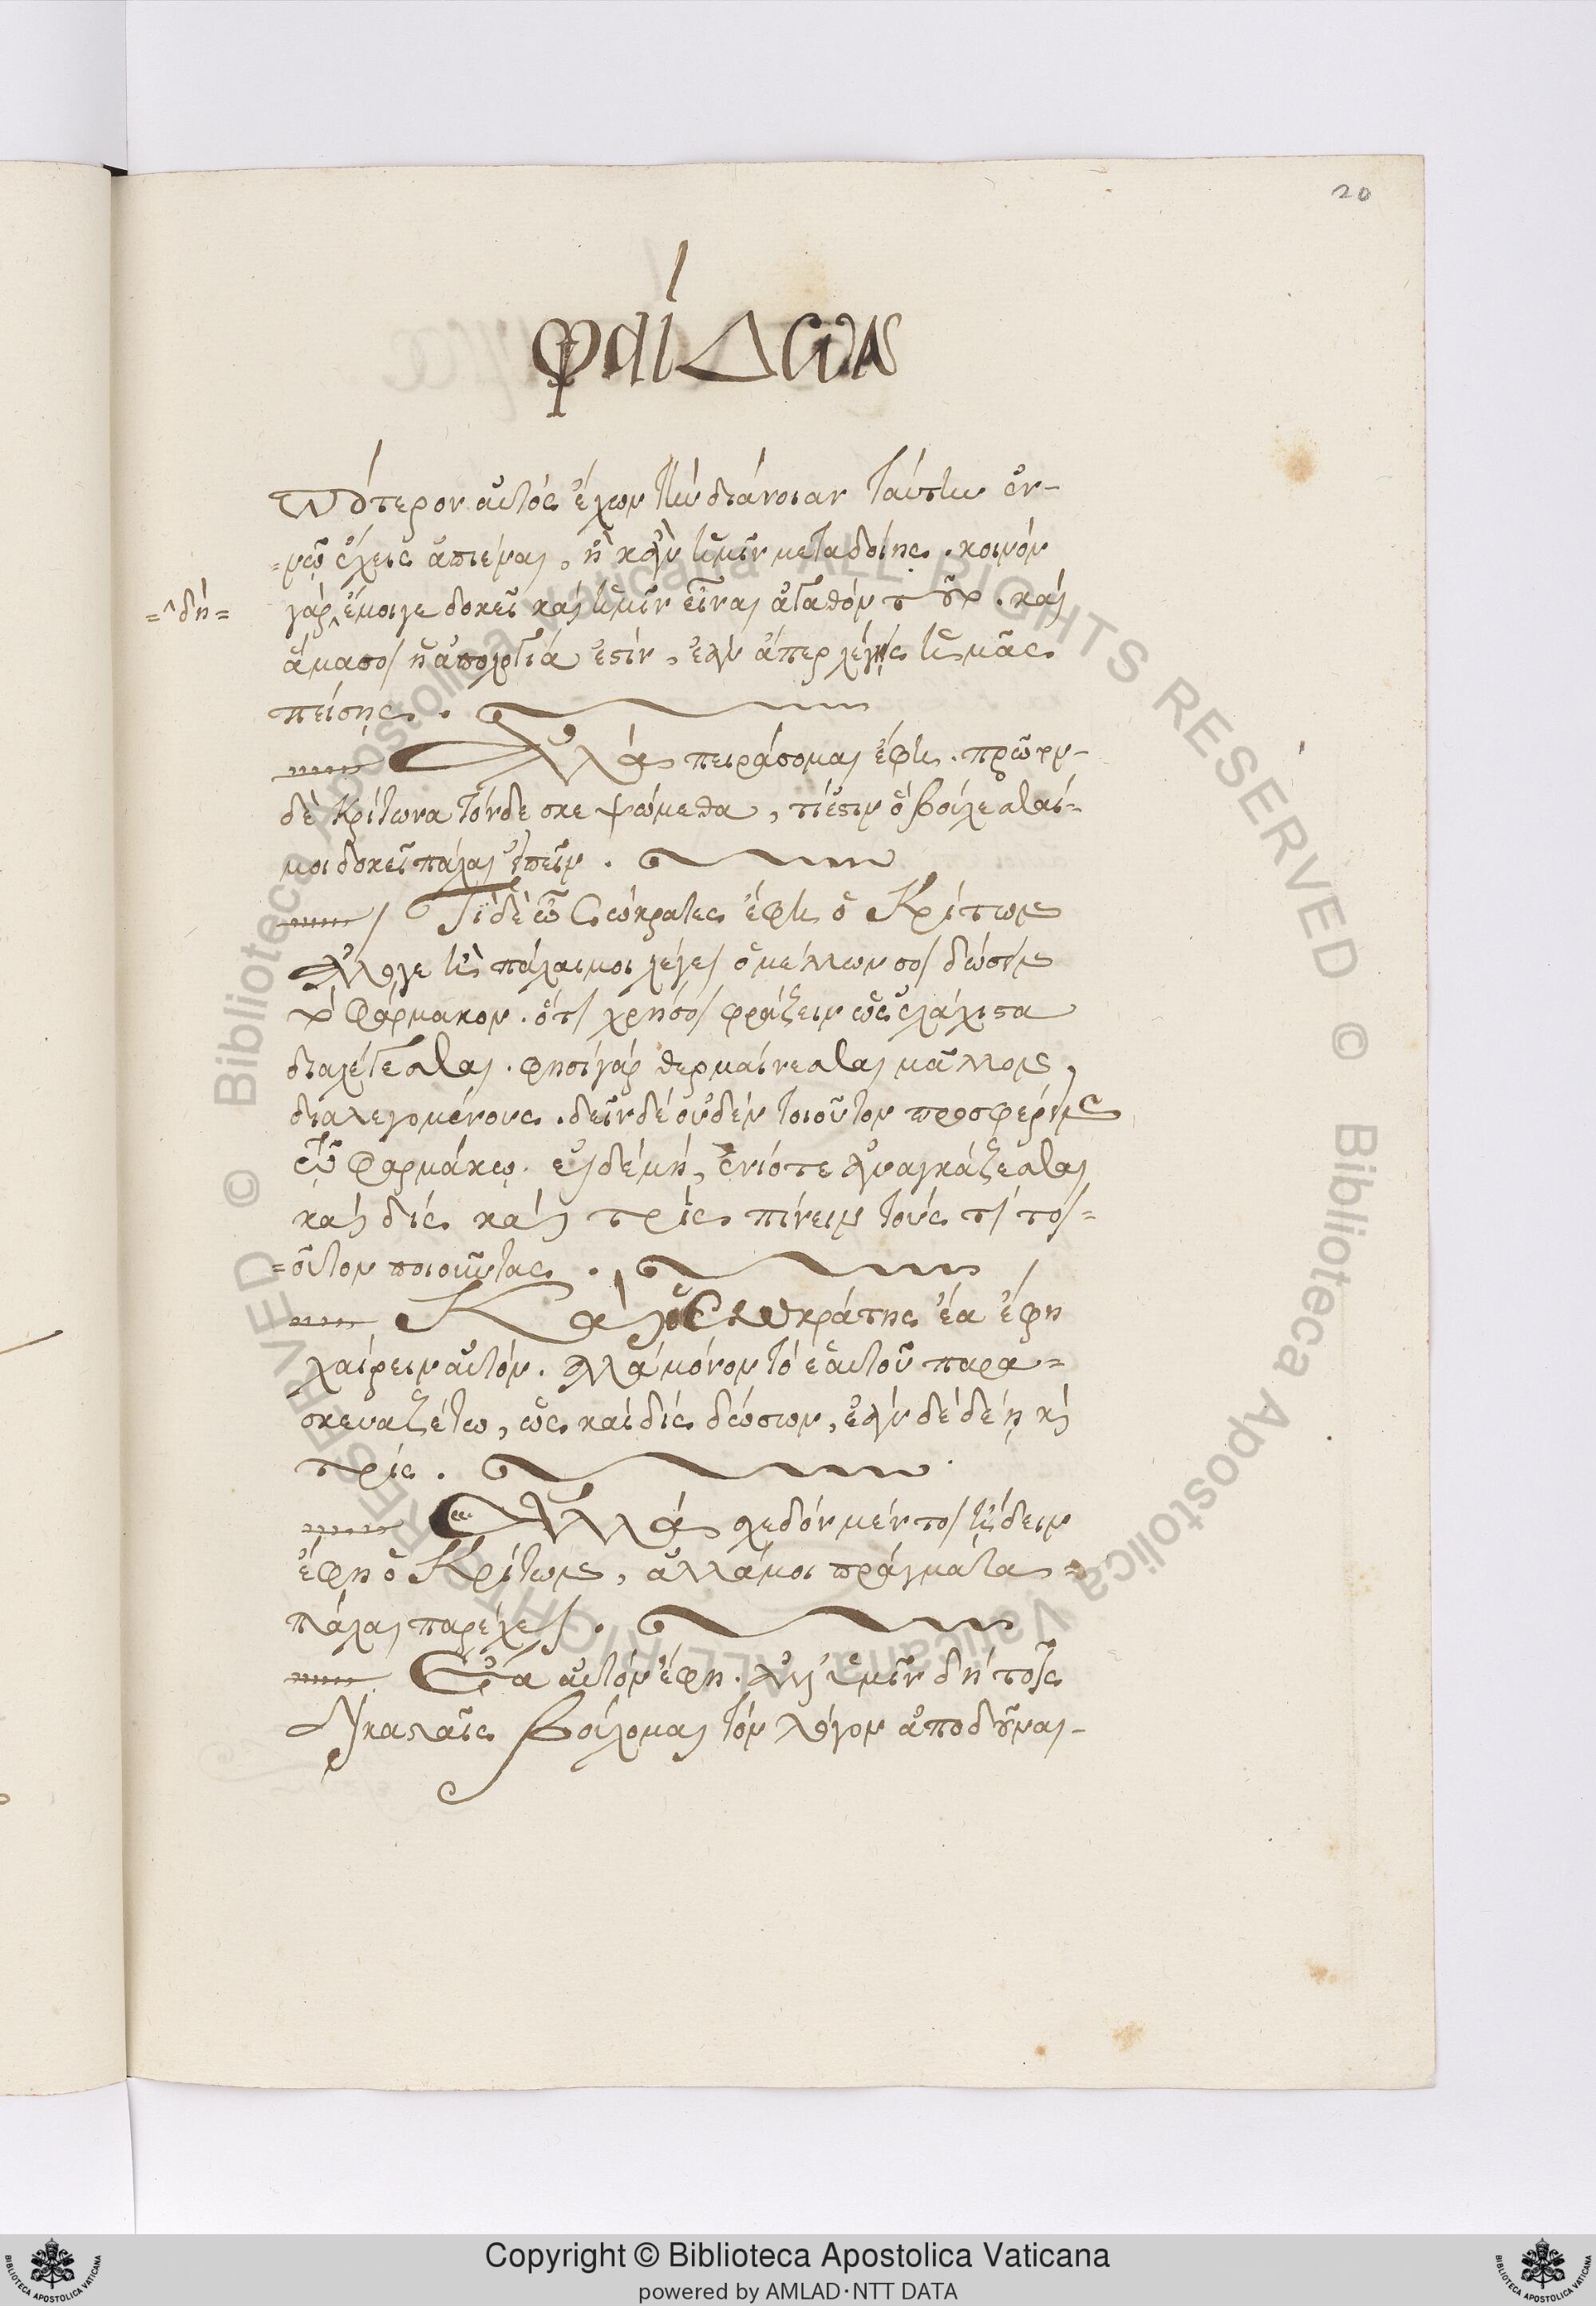 20
φαίδων
Πότερον αὐτός ἔχων τὴν διάνοιαν ταύτην ἐν-
=νῷ ἔχεις ἀπιέναι, ἢ κἂν ἡμῖν μεταδοίης. κοινόν
=^δή=
γάρ ἔμοιγε δοκεῖ καί ἡμῖν εἶναι ἀγαθόν τοῦτο. καί
ἅμα σοι ἡ ἀπολογία ἐστίν, ἐάν ἅπερ λέγεις ἡμᾶς
πείσῃς.
Ἀλλά πειράσομαι ἔφη. πρῶτον-
δὲ Κρίτωνα τόνδε σκεψώμεθα, τί ἐστιν ὃ βούλεσθαί-
μοι δοκεῖ πάλαι εἰπεῖν.
Τί δὲ ὦ Σώκρατες ἔφη ὁ Κρίτων
ἄλλογε ἢ πάλαι μοι λέγει ὁ μέλλων σοι δώσειν
τό φάρμακον. ὅτι χρή σοι φράζειν ὡς ἐλάχιστα
διαλέγεσθαι. φησί γάρ θερμαίνεσθαι μᾶλλον,
διαλεγομένους. δεῖν δέ οὐδέν τοιοῦτον προσφέρειν
τῷ φαρμάκῳ. εἰ δέ μή, ἐνίοτε ἀναγκάζεσθαι
καί δίς καί τρίς πίνειν τούς τι τοι=
=οῦτον ποιοῦντας.
Καὶ ὁ Σωκράτης ἔα ἔφη
χαίρειν αὐτόν. ἀλλά μόνον τό ἑαυτοῦ παρα=
σκευαζέτω, ὡς καί δίς δώσων, ἐάν δέ δέῃ καί
τρίς.
Ἀλλά σχεδόν μέν τοι ᾔδειν
ἔφη ὁ Κρίτων, ἀλλά μοι πράγματα =
πάλαι παρέχει.
Ἔα αὐτόν ἔφη. ἀλλ' ὑμῖν δή τοῖς
δικασταῖς βούλομαι τόν λόγον ἀποδοῦναι-
Copyright © Biblioteca Apostolica Vaticana
powered by AMLAD·NTT DATA